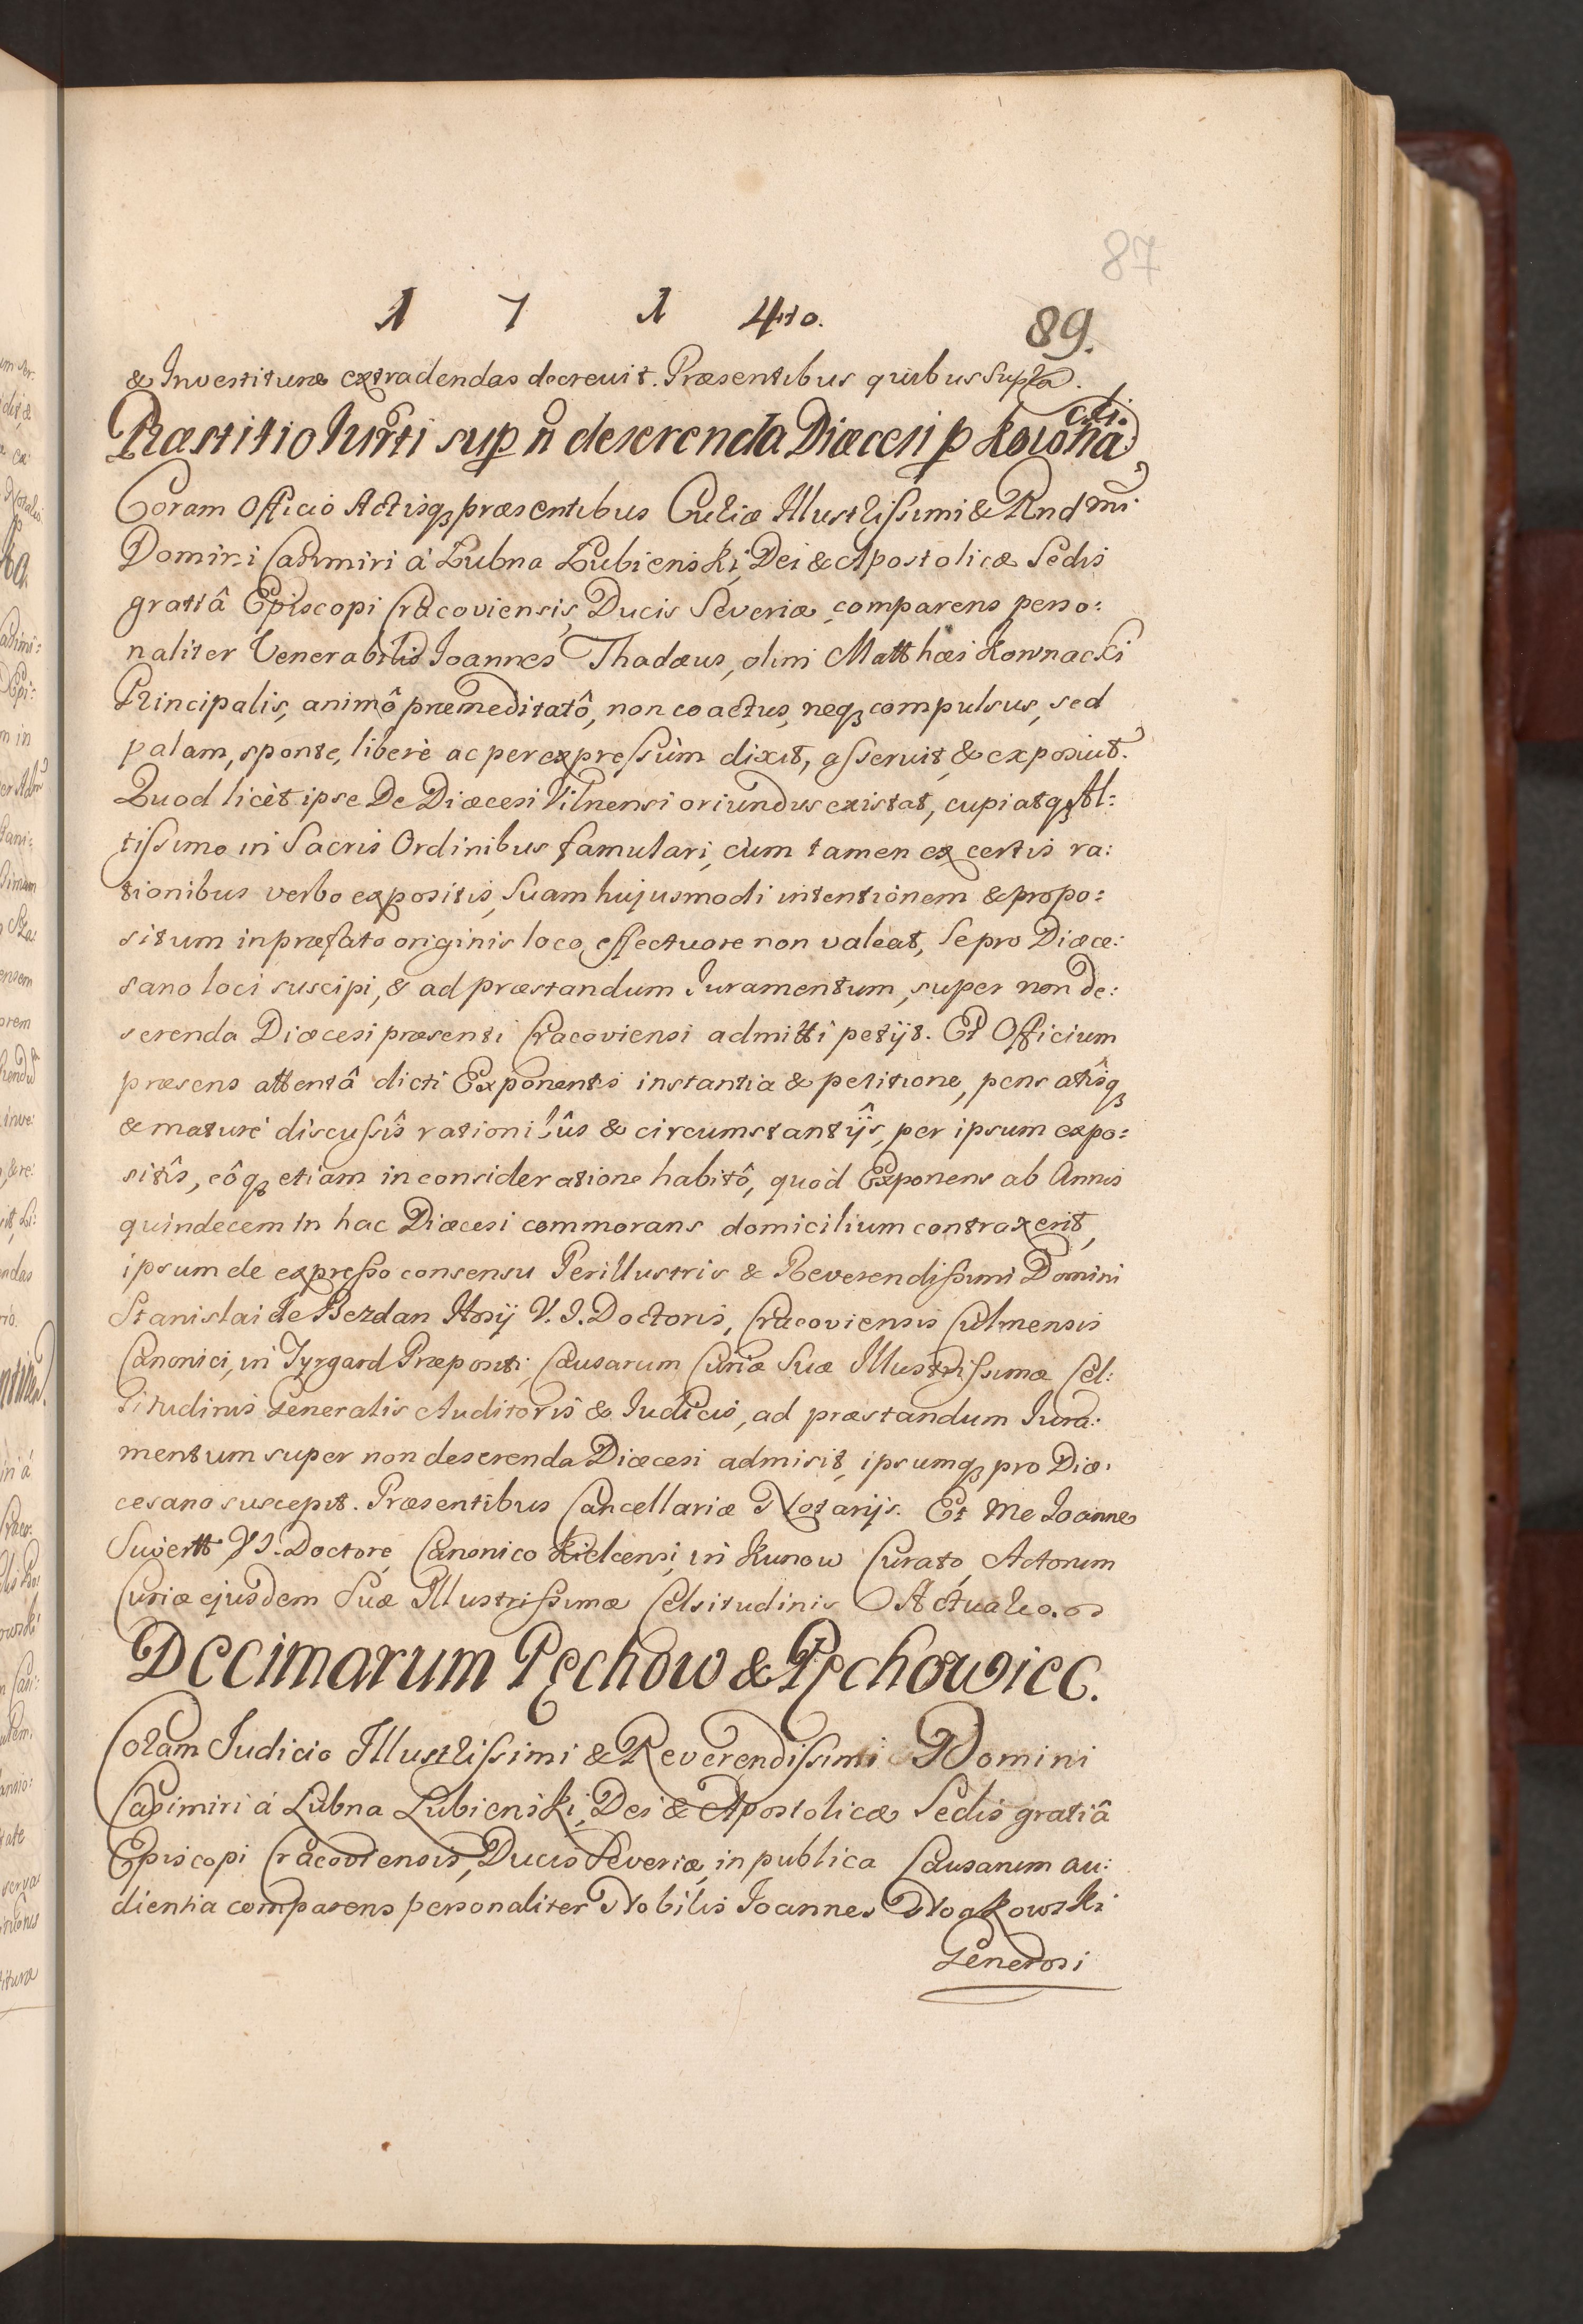 87
1 7 1 4to. 89.
& Investituræ extradendas decrevit. Præsentibus quibus supra.
Præstitio Iurti sup n̄ deserenda Diœcesi p Kowna
cki.
Coram Officio Actisq præsentibus Curiæ Illustrissimi & Rndmi
Domini Casimiri á Lubna Lubienski, Dei & Apostolicæ Sedis
gratiâ Episcopi Cracoviensis, Ducis Severiæ, comparens perso:
naliter Venerabilis Ioannes Thadæus, olim Matthæi Kownacki
Principalis, animô præmeditatô, non coactus, neq compulsus, sed
palam, sponte, liberè ac per expressùm dixit, asseruit, & exposuit.
Quod licèt ipse De Diœcesi Vilnensi oriundus existat, cupiatq Al:
tissimo in Sacris Ordinibus famulari, cùm tamen ex certis ra:
tionibus verbo expositis, Suam hujusmodi intentionem & propo:
situm in præfato originis loco, effectuare non valeat, Se pro Diœce:
sano loci suscipi, & ad præstandum Iuramentum, super non de:
serenda Diœcesi præsenti Cracoviensi admitti petijt. Et Officium
præsens attentâ dicti Exponentis instantia & petitione, pensatîsq
& maturè discussîs rationibûs & circumstantijs, per ipsum expo:
sitîs, eôq etiam in consideratione habitô, quòd Exponens ab Annis
quindecem in hac Diœcesi commorans domicilium contraxerit,
ipsum de expresso consensu Perillustris & Reverendissimi Domini
Stanislai de Bezdan Hosij V. I. Doctoris, Cracoviensis Culmensis
Canonici, in Tyrgard Præpositi, Causarum Curiæ Suæ Illustrissimæ Cel:
situdinis Generalis Auditoris & Iudicis, ad præstandum Iura:
mentum super non deserenda Diœcesi admisit, ipsumq pro Diœ:
cesano suscepit. Præsentibus Cancellariæ Notarijs. Et Me Ioanne
Suvertt V I. Doctore, Canonico Kielcensi, in Kunow Curato, Actorum
Curiæ ejusdem Suæ Illustrissimæ Celsitudinis Actuario.
Decimarum Pęchow & Pęchowiec.
Coram Iudicio Illustrissimi & Reverendissimi Domini
Casimiri á Lubna Lubienski, Dei & Apostolicæ Sedis gratiâ
Episcopi Cracoviensis, Ducis Severiæ, in publica Causarum au:
dientia comparens personaliter Nobilis Ioannes Noakowski
Generosi